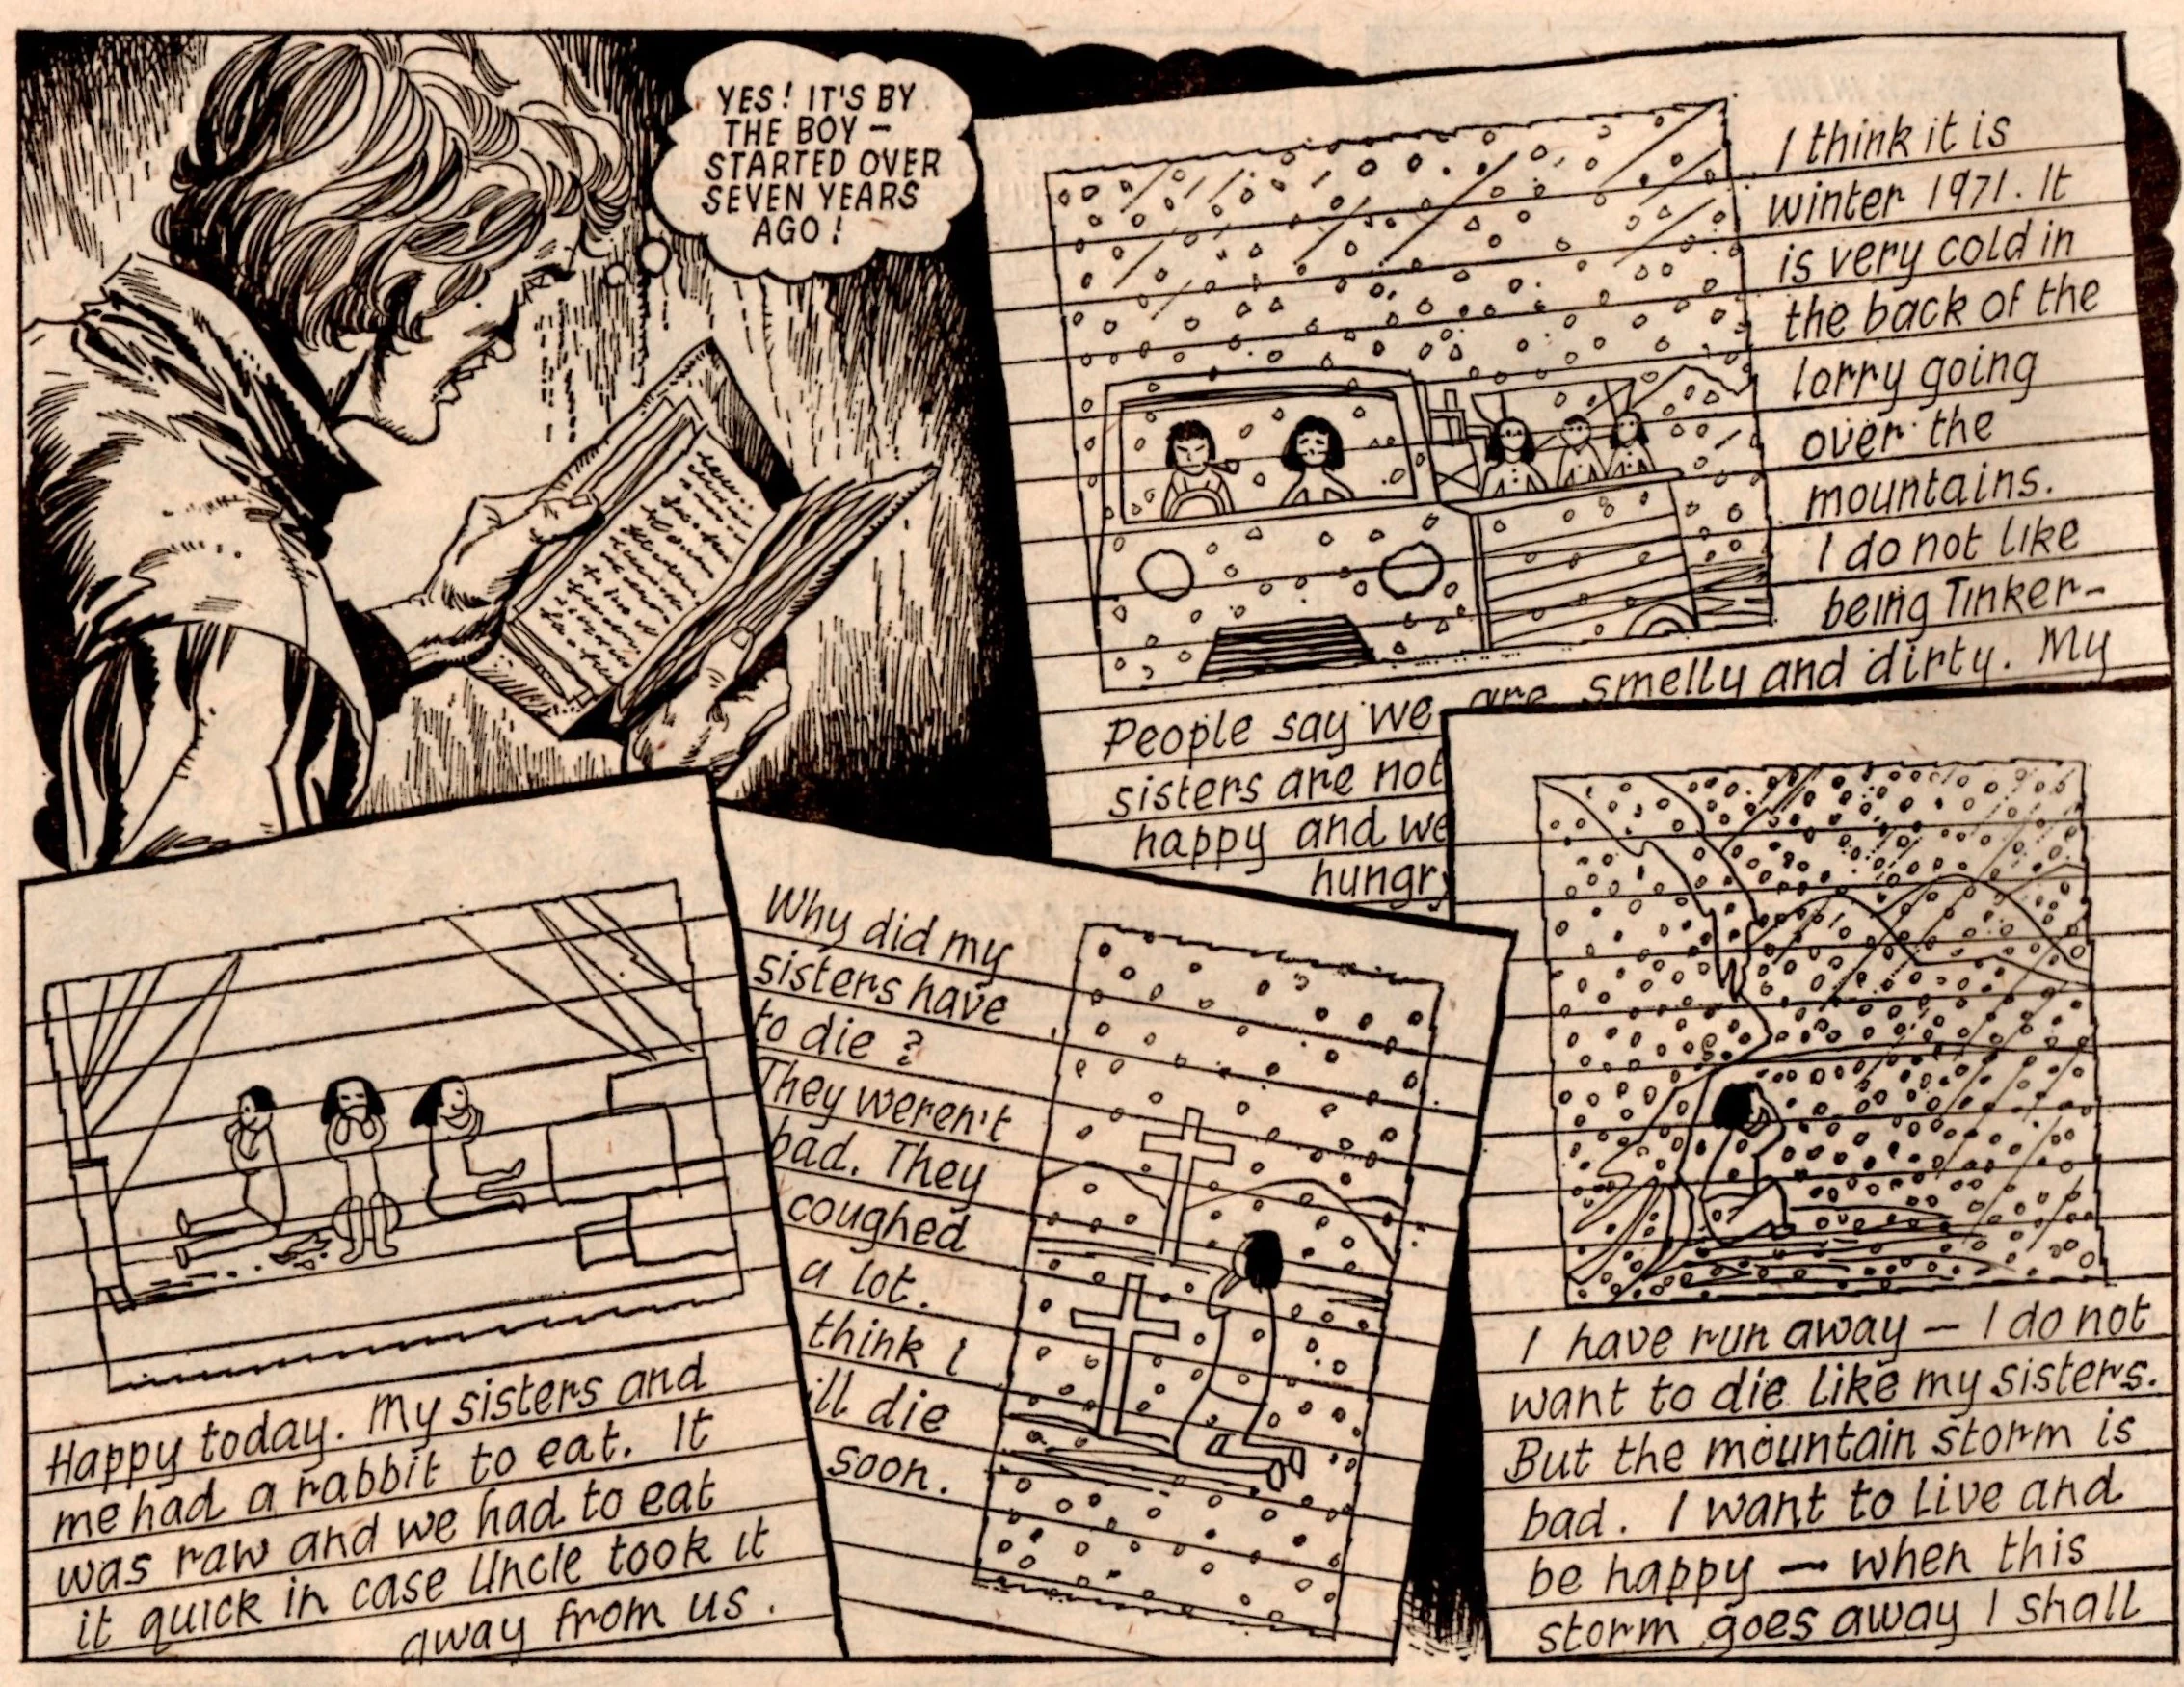 YES! IT'S BY
THE BOY —
STARTED OVER
SEVEN YEARS
AGO!
I think it is
winter 1971. It
is very cold in
the back of the
lorry going
over the
mountains.
I do not like
being Tinker-
People say we are smelly and dirty. My
sisters are not
happy and we
hungry
Happy today. My sisters and
me had a rabbit to eat. It
was raw and we had to eat
it quick in case Uncle took it
away from us.
Why did my
sisters have
to die?
They weren't
bad. They
coughed
a lot.
think I
ill die
soon.
I have run away — I do not
want to die like my sisters.
But the mountain storm is
bad. I want to live and
be happy — when this
storm goes away I shall